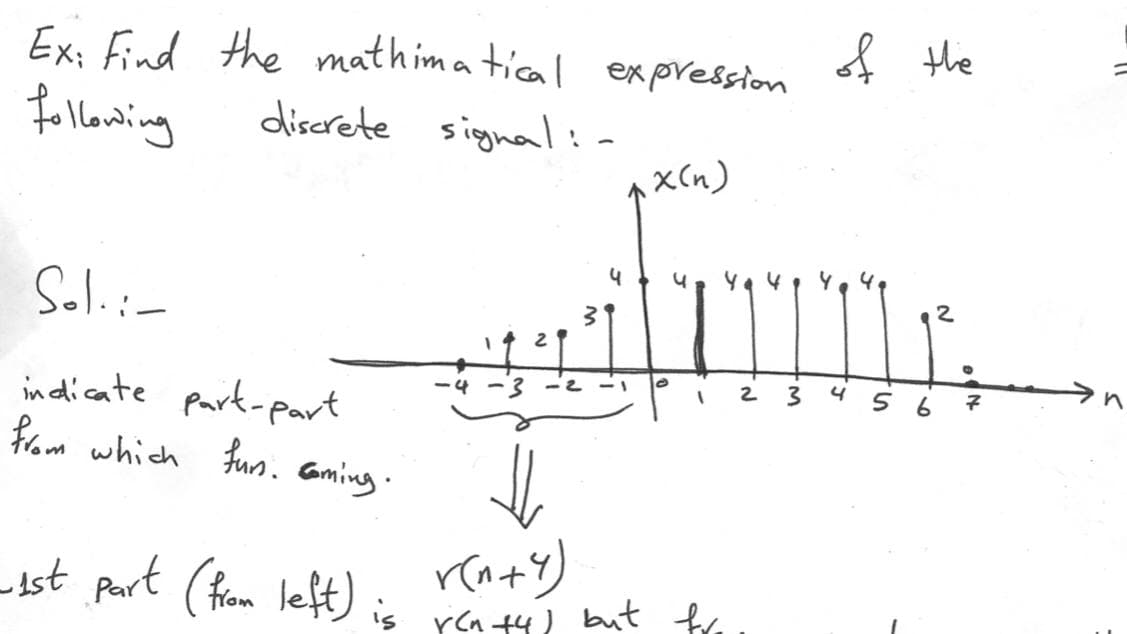 Ex: Find the mathimatical expression of the
following discrete signal:-
x(n)
Sol.:-
4 4 4 4 4 4
3
2
1 2
0
-4 -3 -2 -1 0 1 2 3 4 5 6 7 n
indicate part-part
from which fun. coming.
r(n+4)
-1st part (from left) is r(n+4) but